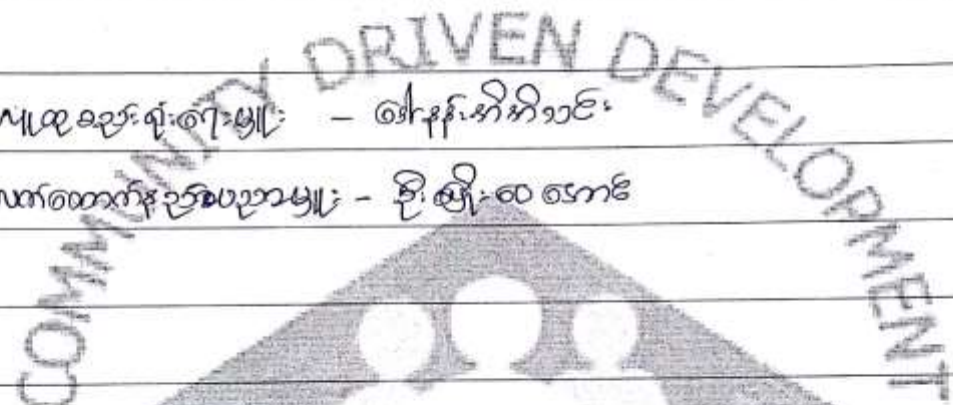 COMMUNITY DRIVEN DEVELOPMENT
လူထုစည်းရုံးရေးမှူး - ဒေါ်နန်းအိအိသင်း
လက်ထောက်နည်းပညာမှူး - ဦးဖြိုးဝေအောင်